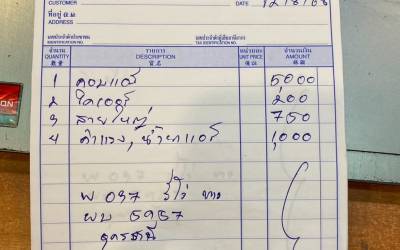 CUSTOMER
12/8/68
ที่อยู่ 住址
ADDRESS
เลขประจำตัวประชาชน
IDENTIFICATION NO.
เลขประจำตัวผู้เสียภาษีอากร
TAX IDENTIFICATION NO.
จำนวน รายการ หน่วยละ จำนวนเงิน
QUANTITY DESCRIPTION UNIT PRICE AMOUNT
數量 貨名
1 คอมแอร์ 5000
2 ไดเออร์ 200
3 สายใหญ่ 750
4 ค่าแรง, น้ำยาแอร์ 1,000
5957
อุดรธานี